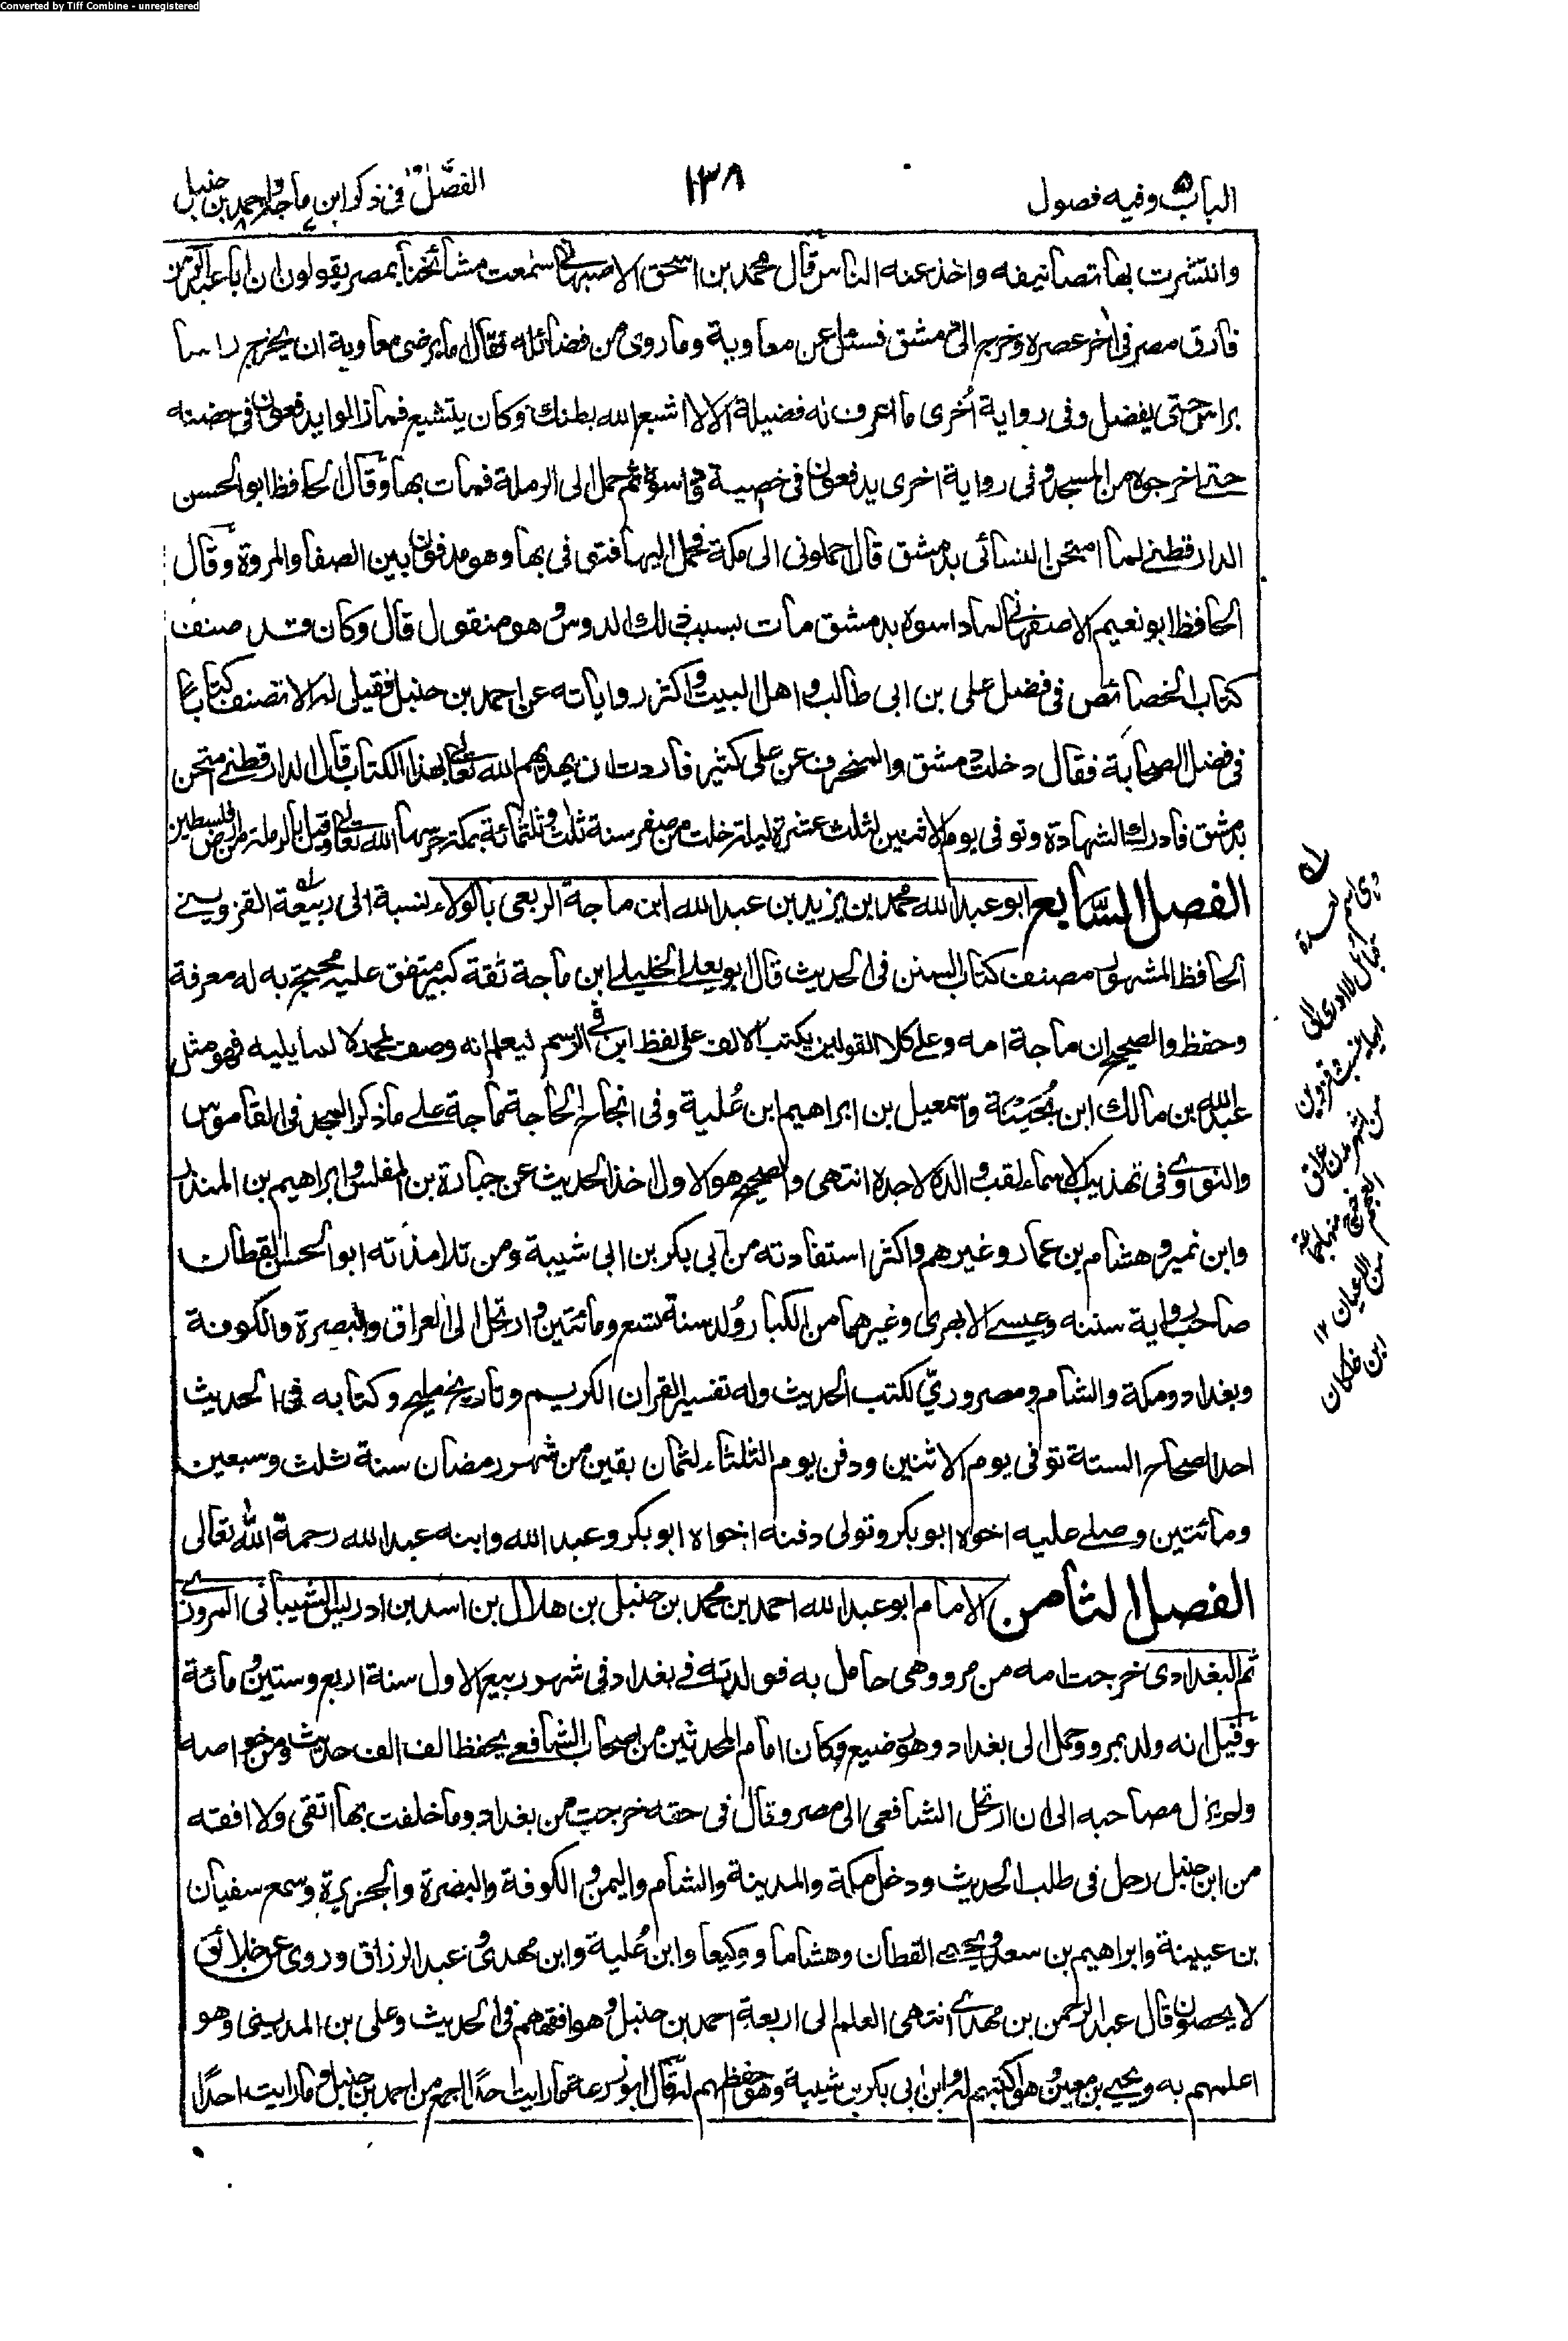 Converted by Tiff Combine - unregistered
الباب ٥ وفيه فصول
١٣٨
الفصل ٧، ٨ فى ذكر ابن ماجة واحمد بن حنبل
وانتشرت بها تصانيفه واخذ عنه الناس قال محمد بن اسحق الاصبهانى سمعت مشائخنا بمصر يقولون ان ابا عبد الرحمن
فارق مصر فى اخر عصره وخرج الى دمشق فسئل عن معاوية وما روى من فضائله فقال ما يرضى معاوية ان يخرج راسا
براس حتى يفضل وفى رواية أخرى ما اعرف له فضيلة الا لا اشبع الله بطنك وكان يتشيع فما زالوا يدفعون فى حضنه
حتى اخرجوه من المسجد وفى رواية اخرى يدفعون فى خصيية وداسوه ثم حمل الى الرملة فمات بها وقال الحافظ ابو الحسن
الدارقطنى لما امتحن النسائى بدمشق قال احملونى الى مكة فحمل اليها فتوفى بها وهو مدفون بين الصفا والمروة وقال
الحافظ ابو نعيم الاصفهانى لما داسوه بدمشق مات بسبب ذلك الدوس وهو منقول قال وكان قد صنف
كتاب الخصائص فى فضل على بن ابى طالب واهل البيت واكثر رواياته عن احمد بن حنبل فقيل له الا تصنف كتابا
فى فضل الصحابة فقال دخلت دمشق والمنحرف عن على كثير فاردت ان يهديهم الله تعالى بهذا الكتاب قال الدارقطنى امتحن
بدمشق فادرك الشهادة وتوفى يوم الاثنين لثلث عشرة ليلة خلت من صفر سنة ثلث وثلثمائة بمكة حرسها الله تعالى وقيل بالرملة من ارض فلسطين
الفصل السابع ابو عبد الله محمد بن يزيد بن عبد الله ابن ماجة الربعى بالولاء نسبة الى ربيعة القزوينى
الحافظ المشهور مصنف كتاب السنن فى الحديث قال ابو يعلى الخليلى ابن ماجة ثقة كبير متفق عليه محتج به له معرفة
وحفظ والصحيح ان ماجة امه وعلى كلا القولين يكتب الالف على لفظ ابن فى الرسم ليعلم انه وصف لمحمد لا لما يليه فهو مثل
عبد الله بن مالك ابن بُحَيْنَة واسمعيل بن ابراهيم ابن عُلية وفى انجاح الحاجة ماجة على ما ذكر المجد فى القاموس
والنووى فى تهذيب الاسماء لقب والده لا جده انتهى والصحيح هو الاول اخذ الحديث عن جبارة بن المغلس وابراهيم بن المنذر
وابن نمير وهشام بن عمار وغيرهم واكثر استفادته من ابى بكر بن ابى شيبة ومن تلامذته ابو الحسن القطان
صاحب رواية سننه وعيسى الابهرى وغيرهما من الكبار وُلد سنة تسع ومائتين وارتحل الى العراق والبصرة والكوفة
وبغداد ومكة والشام ومصر وريّ لكتب الحديث وله تفسير القران الكريم وتاريخ مليح وكتابه فى الحديث
احد الصحاح الستة توفى يوم الاثنين ودفن يوم الثلثاء لثمان بقين من شهر رمضان سنة ثلث وسبعين
ومائتين وصلى عليه اخوه ابو بكر وتولى دفنه اخواه ابو بكر وعبد الله وابنه عبد الله رحمة الله تعالى
الفصل الثامن الامام ابو عبد الله احمد بن محمد بن حنبل بن هلال بن اسد ابن ادريس الشيبانى المروزى
ثم البغدادى خرجت امه من مرو وهى حامل به فولدته فى بغداد فى شهر ربيع الاول سنة اربع وستين ومائة
وقيل انه ولد بمرو وحمل الى بغداد وهو رضيع وكان امام المحدثين من اصحاب الشافعى يحفظ الف الف حديث ومن خواصه
ولم يزل مصاحبه الى ان ارتحل الشافعى الى مصر وقال فى حقه خرجت من بغداد وما خلفت بها اتقى ولا افقه
من ابن حنبل رحل فى طلب الحديث ودخل مكة والمدينة والشام واليمن والكوفة والبصرة والجزيرة وسمع سفيان
بن عيينة وابراهيم بن سعد ويحيى القطان وهشاما ووكيعا وابن عُلية وابن مهدى وعبد الرزاق وروى عن خلائق
لا يحصون قال عبد الرحمن بن مهدى انتهى العلم الى اربعة احمد بن حنبل وهو افقههم فى الحديث وعلى بن المدينى وهو
اعلمهم به ويحيى بن معين وهو اكتبهم له وابن ابى بكر بن شيبة وهو احفظهم له وقال ابو زرعة ما رايت احدا اجمع من احمد بن حنبل وما رايت احدًا
له
وهى اسم لعدة
قبائل لا ادرى الى
ايها نسبت قزوين
من اشهر مدن عراق
العجم خرج منها جماعة
من الاعيان ١٢
ابن خلكان